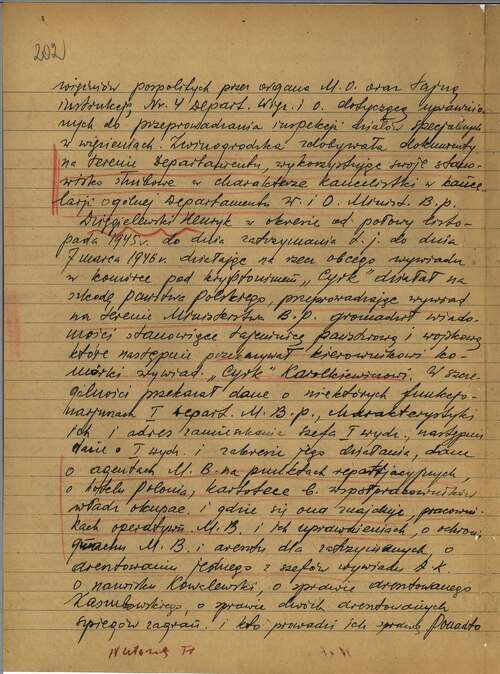 202
więźniów pospolitych przez organa M.O. oraz tajną
instrukcję Nr. 4 Depart. Więz. i O. dotyczącą uprawnio-
nych do przeprowadzania inspekcji działów specjalnych
w więzieniach. Zwinogrodzka zdobywała dokumenty
na terenie Departamentu, wykorzystując swoje stano-
wisko służbowe w charakterze kancelistki w kance-
larji ogólnej Departamentu W. i O. Minist. B.p.
Dzięgielewski Henryk w okresie od połowy listo-
pada 1945 r. do dnia zatrzymania t.j. do dnia
7 marca 1946 r. działając na rzecz obcego wywiadu
w komórce pod kryptonimem „Cyrk" działał na
szkodę państwa Polskiego, przeprowadzając wywiad
na terenie Ministerstwa B.p. gromadził wiado-
mości stanowiące tajemnicę państwową i wojskową
które następnie przekazywał kierownikowi ko-
mórki wywiad. „Cyrk" Karolkiewiczowi. W szcze-
gólności przekazał dane o niektórych funkcjo-
narjuszach I Depart. M.B.p., charakterystyki
ich i adres zamieszkania szefa I wydz., następnie
dane o I wydz. i zakresie jego działania, dane
o agentach M.B. na punktach repatrjacyjnych,
o hotelu Polonia, kartotece b. współpracowników
władz okupac. i gdzie się ona znajduje, pracowni-
kach operatywn. M.B. i ich uprawnieniach, o ochronie
gmachu M.B. i aresztu dla zatrzymanych, o
aresztowaniu jednego z szefów wywiadu A.K.
o nazwisku Kowalewski, o sprawie aresztowanego
o sprawie dwóch aresztowanych
szpiegów zagran. i kto prowadzi ich sprawę. Ponadto